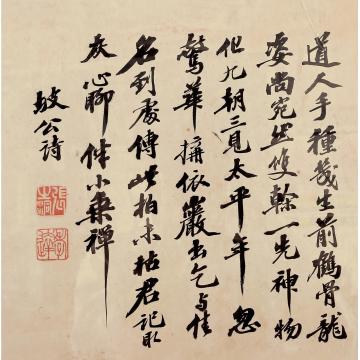 道人手種幾生前鶴骨龍
姿尚宛然雙榦一先神物
化九朝三見太平年忽
驚華構依巖出乞與佳
名到處傳此柏未枯君記取
灰心聊伴小乘禪
坡公詩